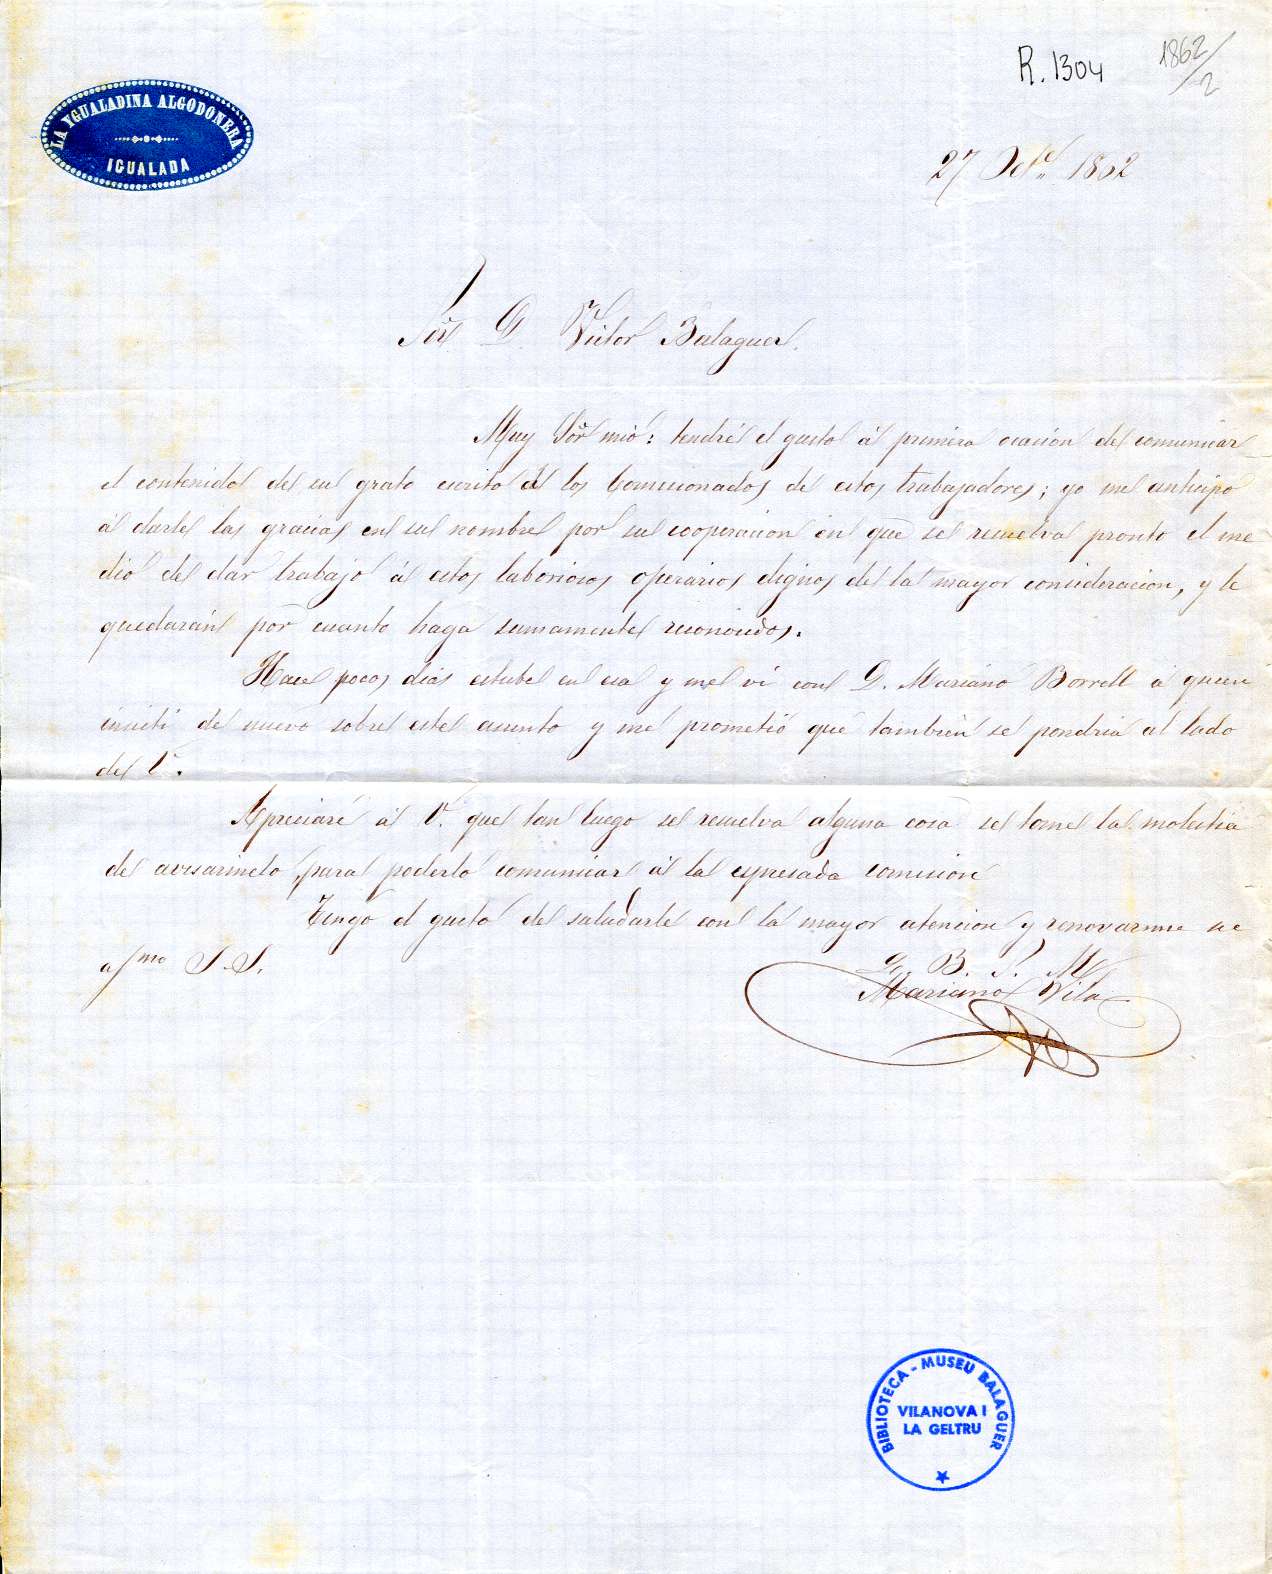 R. 1304
1862/2
LA YGUALADINA ALGODONERA
IGUALADA
27 Oct.e 1862
Sor. D. Victor Balaguer.
Muy Sor mio: tendré el gusto á primera ocacion de comunicar
el contenido de su grato escrito á los Comicionados de estos trabajadores; yo me anticipo
á darle las gracias en su nombre por su cooperacion en que se resuelva pronto el me
dio de dar trabajo á estos laboriosos operarios dignos de la mayor consideracion, y le
quedarán por cuanto haga sumamente reconocidos.
Hace pocos dias estube en esa y me ví con D. Mariano Borrell á quien
insistí de nuevo sobre este asunto y me prometió que tambien se pondria al lado
de V.
Apreciaré á V. que tan luego se resuelva alguna cosa se tome la molestia
de avisarmelo, para poderlo comunicar á la espresada comision
Tengo el gusto de saludarle con la mayor atencion y renovarme su
afmo S. S.
Q. B. S. M.
Mariano Vila
BIBLIOTECA - MUSEU BALAGUER
VILANOVA I
LA GELTRU